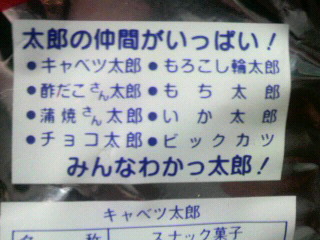 太郎の仲間がいっぱい!
•キャベツ太郎•もろこし輪太郎
•酢だこさん太郎•もち太郎
•蒲焼さん太郎•いか太郎
•チョコ太郎•ビックカツ
みんなわかっ太郎!
キャベツ太郎
名称 スナック菓子